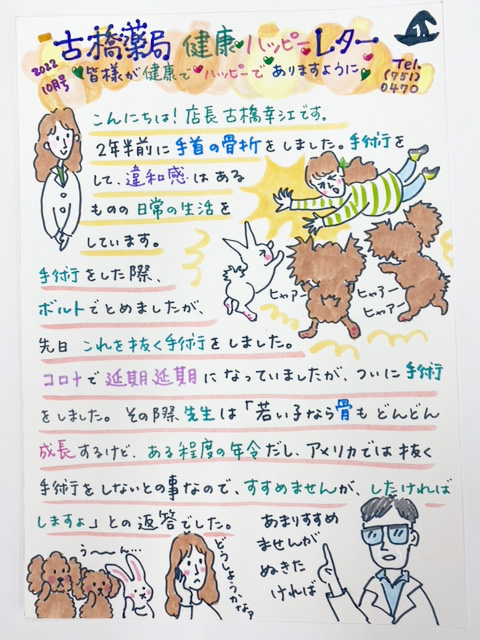 古橋薬局 健康ハッピーレター
2022
10月号
皆様が健康でハッピーでありますように
Tel.
(751)
0470
こんにちは！店長 古橋幸江です。
2年半前に手首の骨折をしました。手術を
して、違和感はある
ものの日常の生活を
しています。
手術をした際、
ボルトでとめましたが、
先日 これを抜く手術をしました。
コロナで延期延期になっていましたが、ついに手術
をしました。その際先生は「若い子なら骨もどんどん
成長するけど、ある程度の年令だし、アメリカでは抜く
手術をしないとの事なので、すすめませんが、したければ
しますよ」との返答でした。
ヒャアー
ヒャアー
ヒャアー
う〜ん…
どうしようかなァ
あまりすすめ
ませんが
ぬきた
ければ